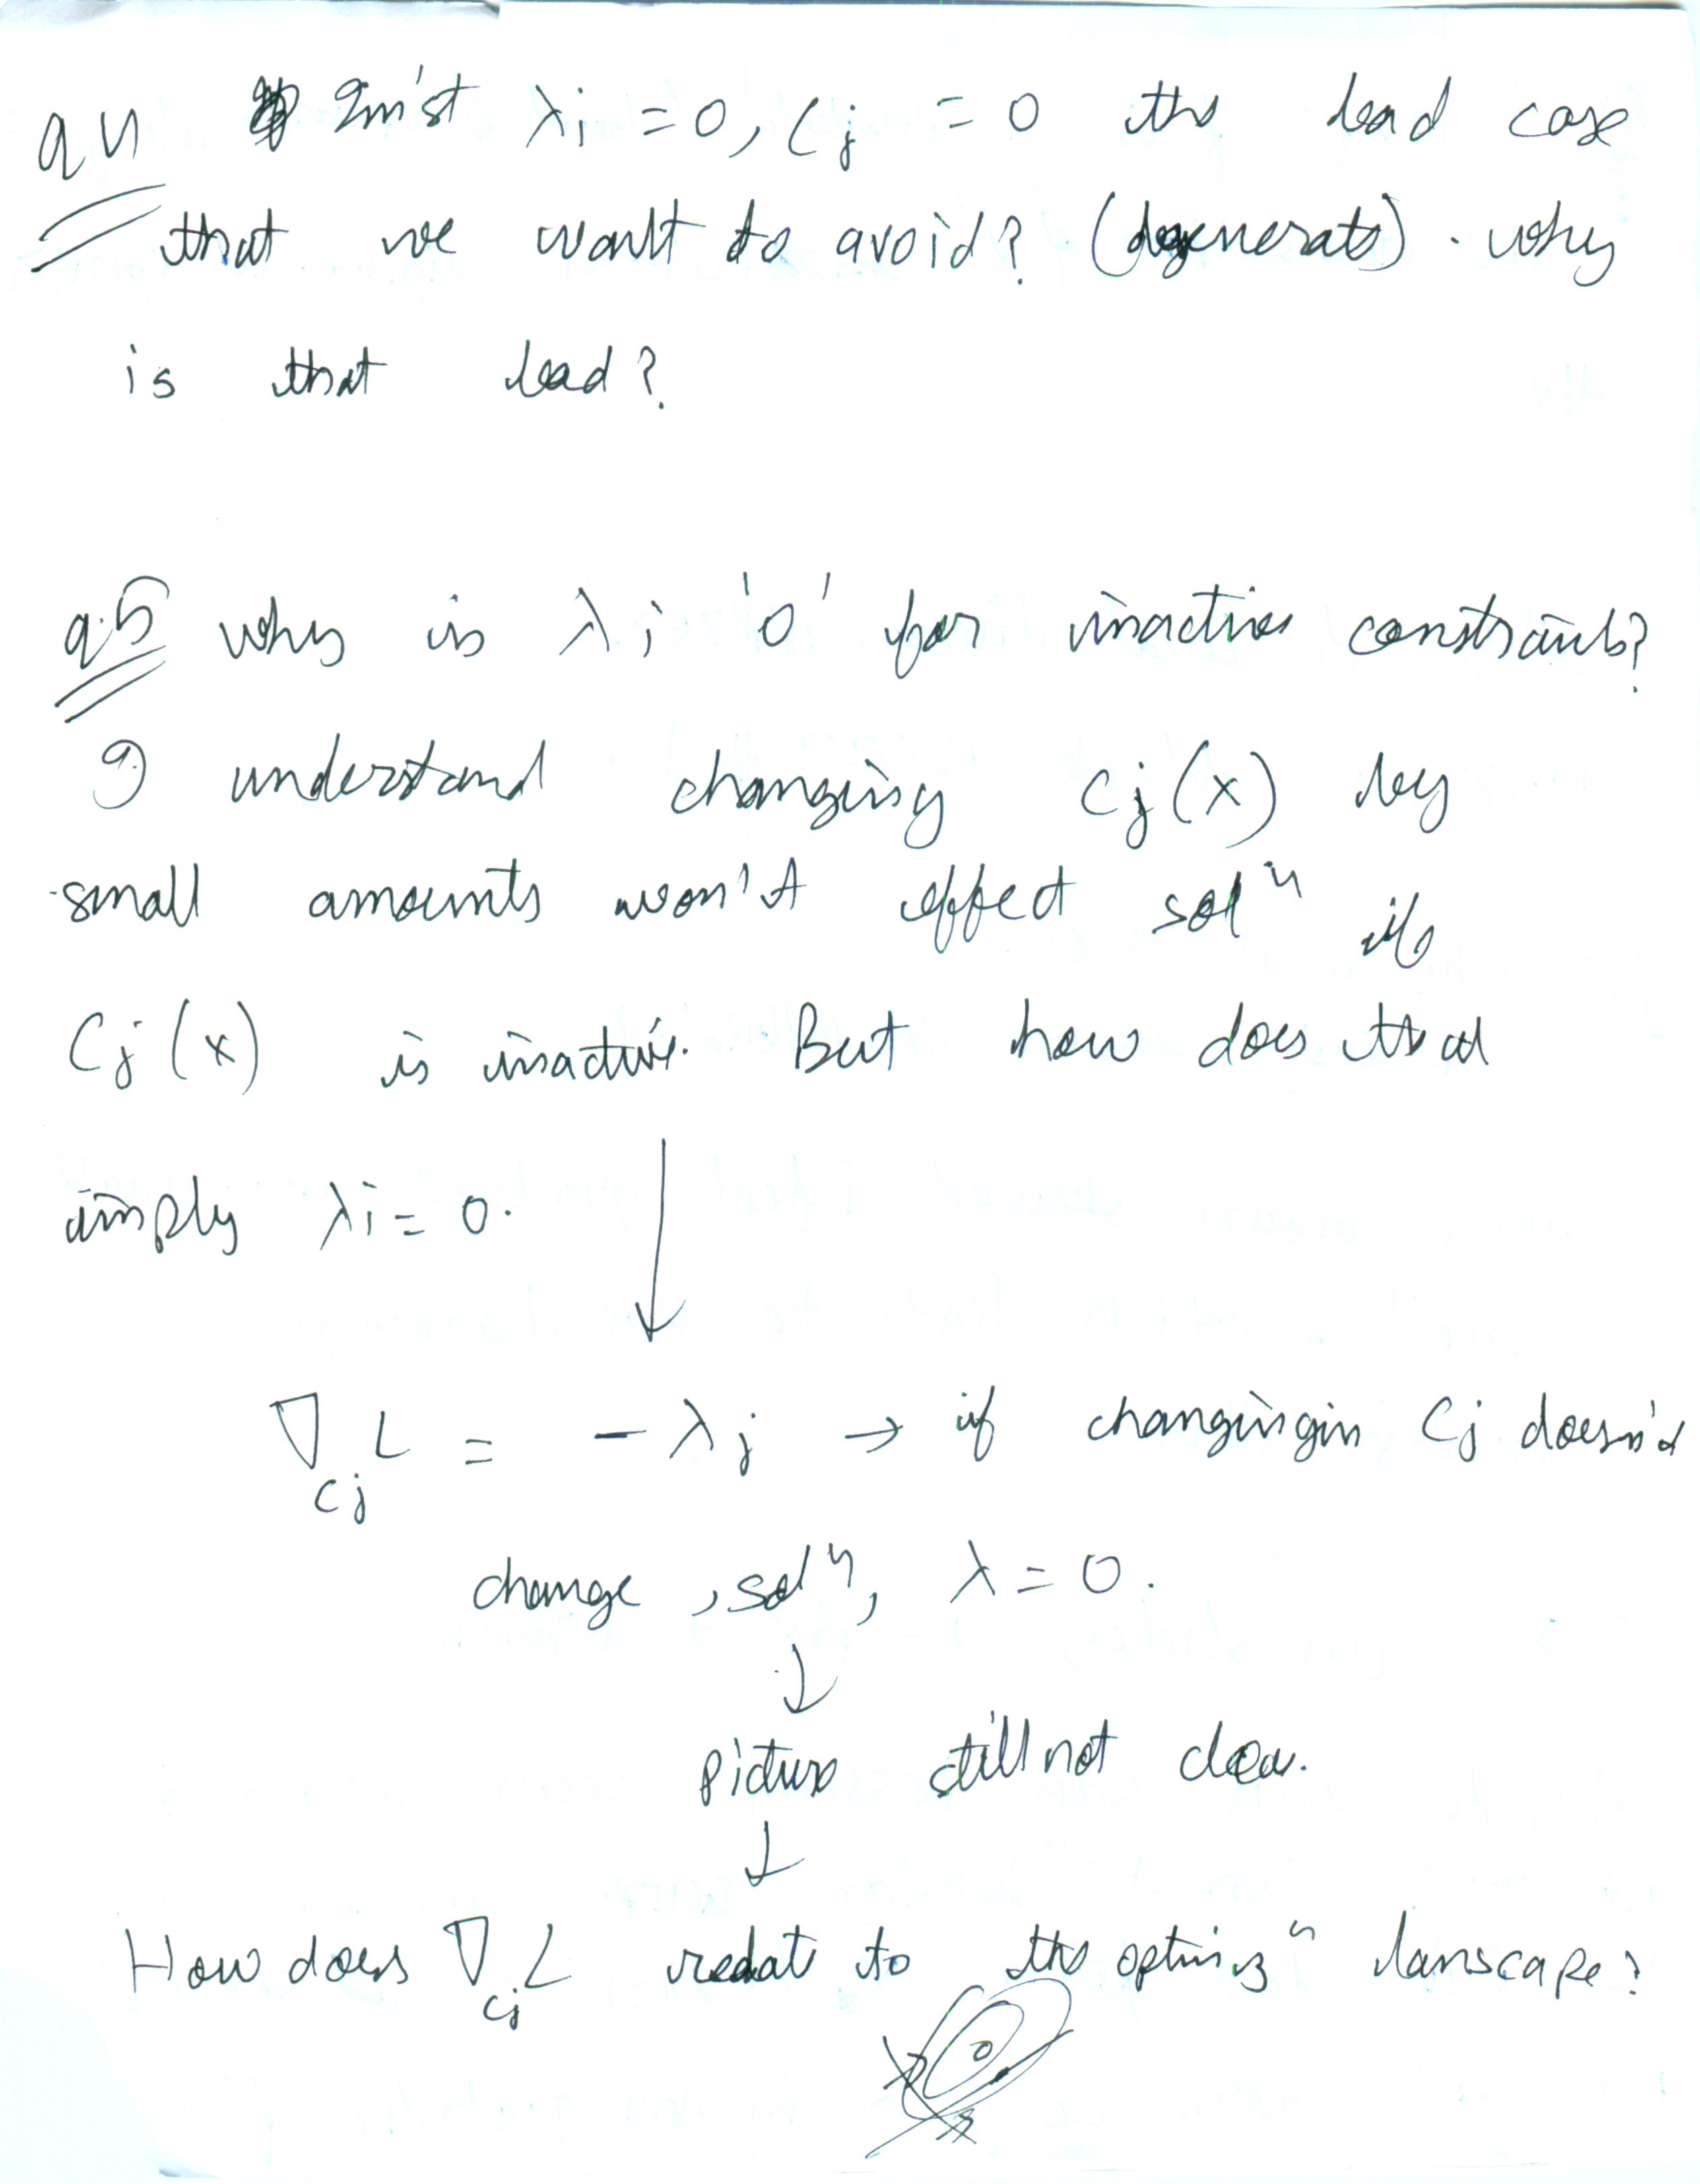 q4 Isn't λi = 0, Cj = 0 the bad case
that we want to avoid? (degenerate). why
is that bad?
q.5 why is λi '0' for inactive constraints?
I understand changing Cj(x) by
small amounts won't effect solⁿ if
Cj(x) is inactive. But how does that
imply λi = 0.
↓
∇CjL = -λj → if changingin Cj doesn't
change solⁿ, λ = 0.
↓
Picture still not clear.
↓
How does ∇CjL relate to the optimizⁿ lanscape?